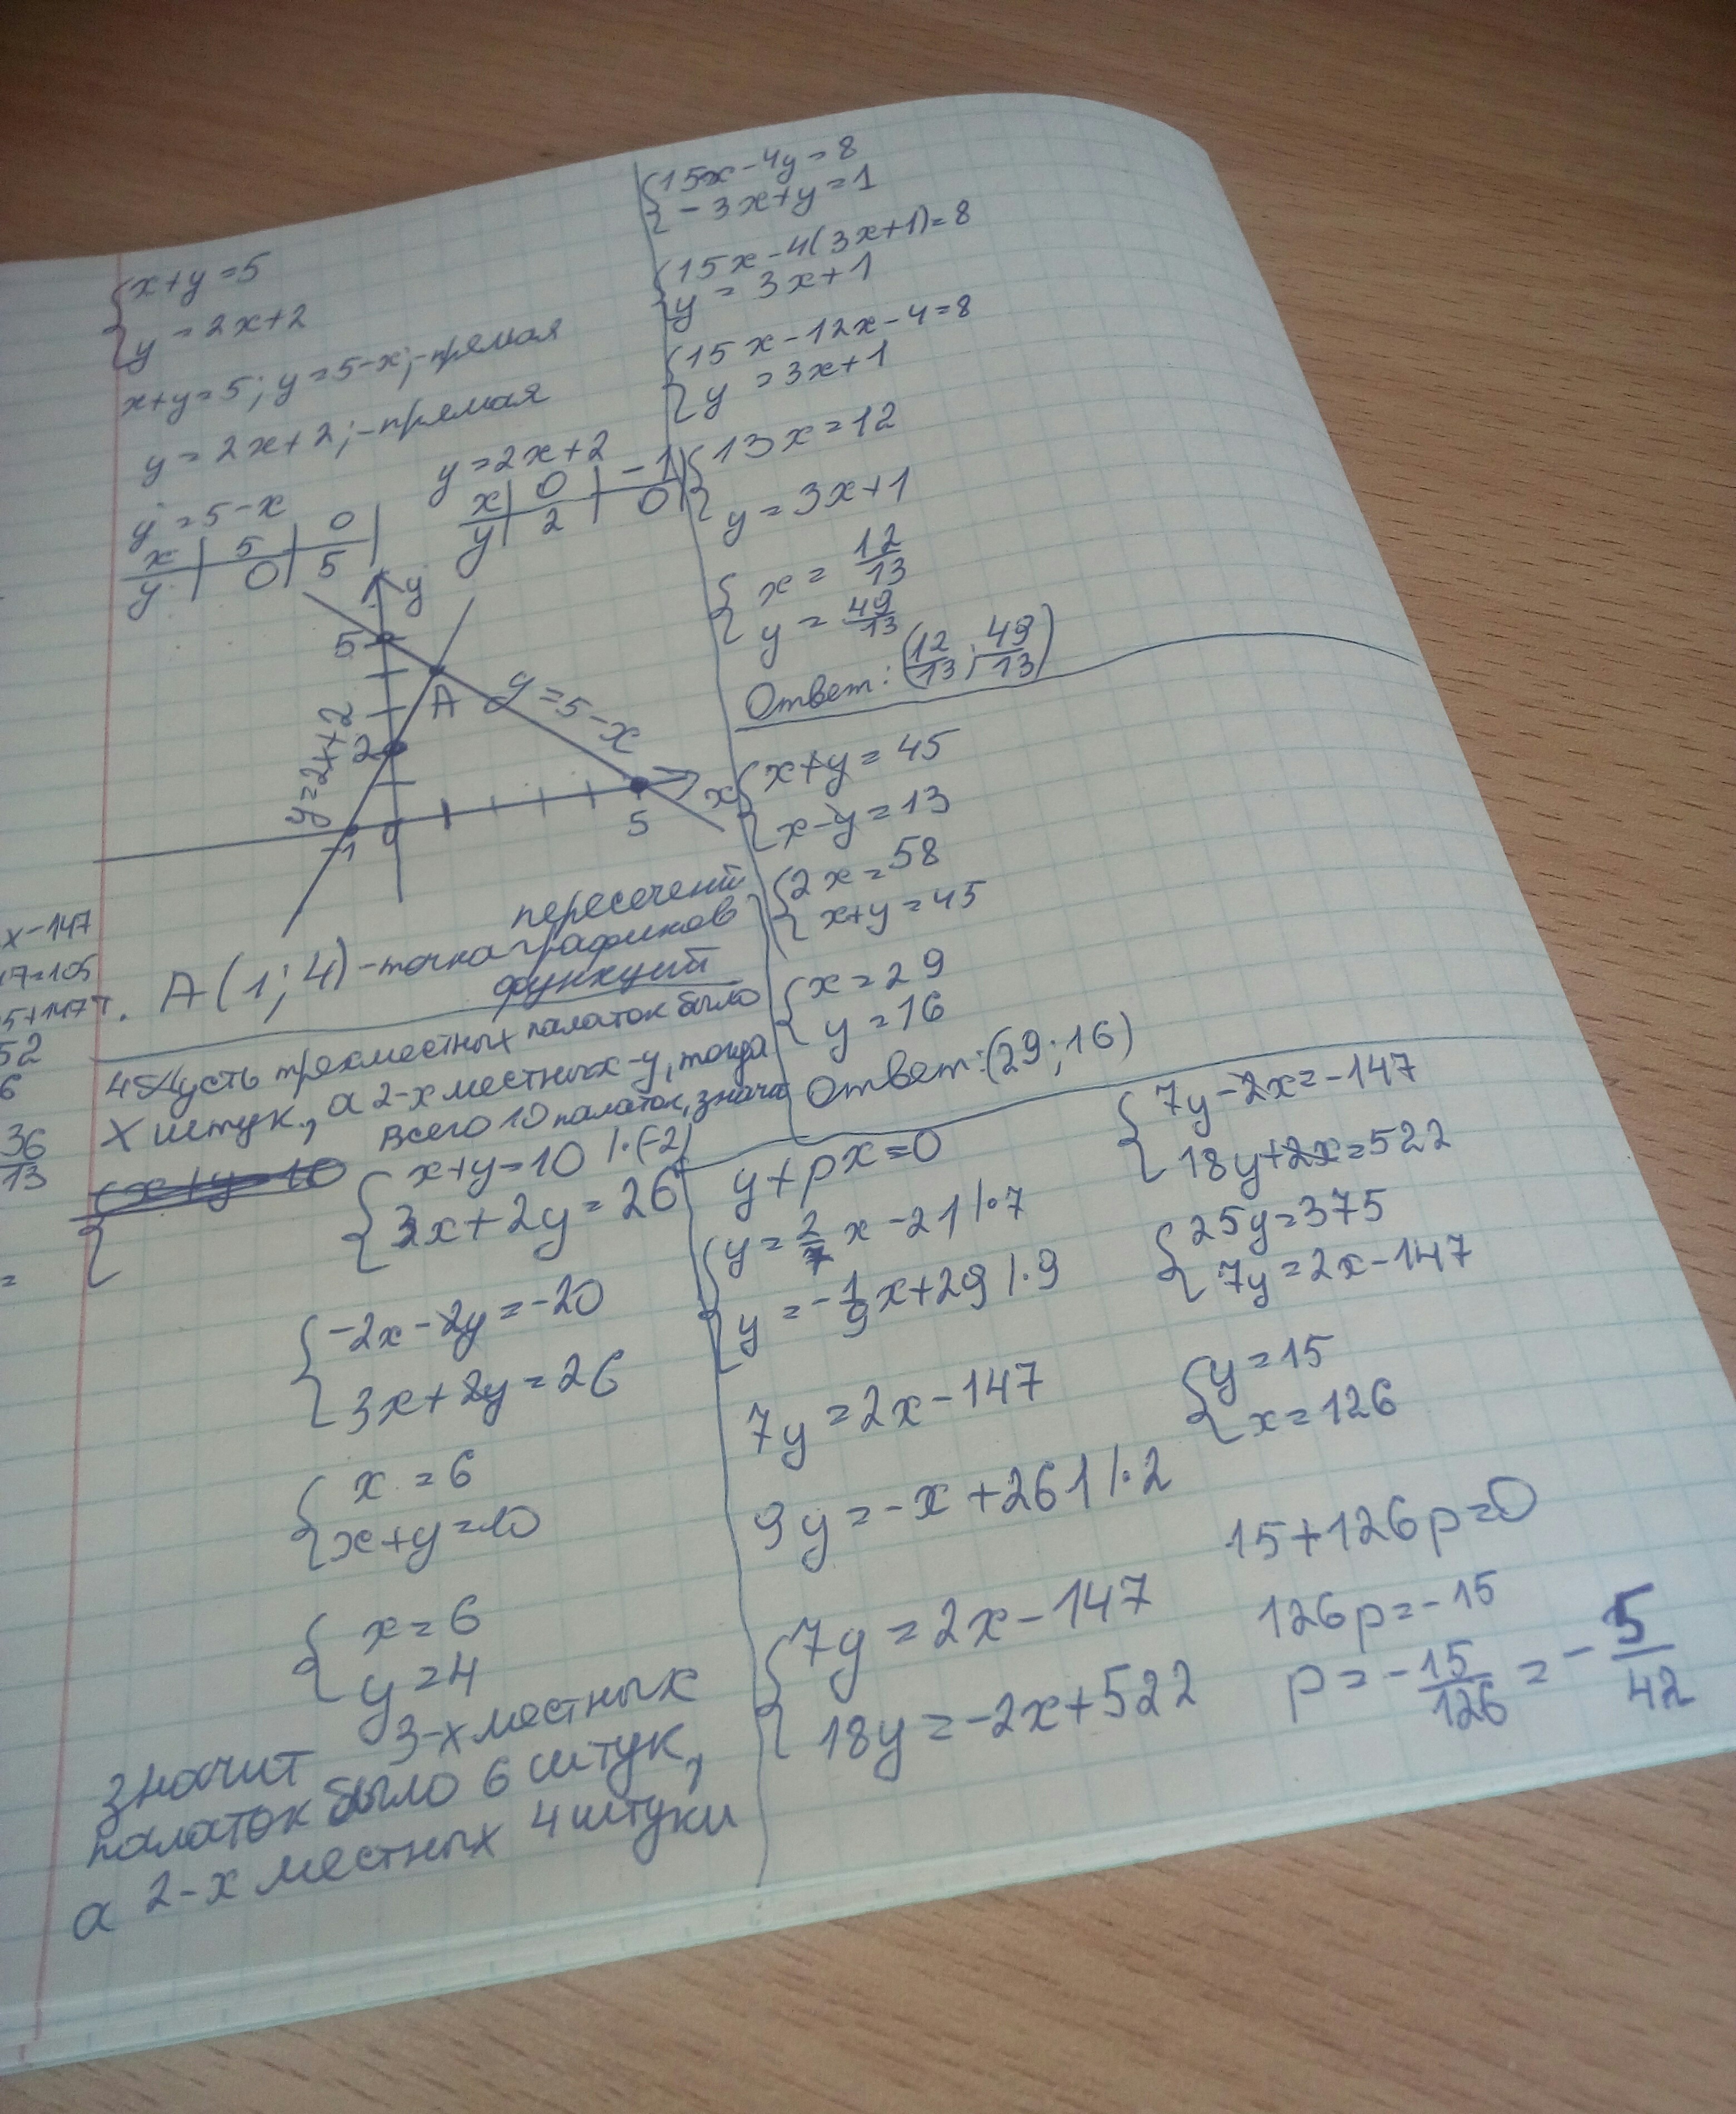 x+y=5
y=2x+2
x+y=5; y=5-x;-прямая
y=2x+2;-прямая
y=5-x
x | 5 | 0 |
y | 0 | 5
y=2x+2
x | 0 | -1
y | 2 | 0
y
5
A
y=5-x
2
y=2x+2
x
-1 0
5
A(1;4)-точка пересечений
графиков
функций
Пусть трехместных палаток было
x штук, а 2-х местных-y, тогда
всего 10 палаток, значит
x+y=10
x+y=10 |·(-2)
3x+2y=26
-2x-2y=-20
3x+2y=26
x=6
x+y=10
x=6
y=4
значит 3-х местных
палаток было 6 штук,
а 2-х местных 4 штуки
15x-4y=8
-3x+y=1
15x-4(3x+1)=8
y=3x+1
15x-12x-4=8
y=3x+1
13x=12
y=3x+1
x=12/13
y=49/13
Ответ: (12/13; 49/13)
x+y=45
x-y=13
2x=58
x+y=45
x=29
y=16
Ответ:(29;16)
y+px=0
y=2/7x-21 |·7
y=-1/9x+29 |·9
7y=2x-147
9y=-x+261 |·2
7y=2x-147
18y=-2x+522
7y-2x=-147
18y+2x=522
25y=375
7y=2x-147
y=15
x=126
15+126p=0
126p=-15
p=-15/126=-5/42
x-147
17=105
5+147
52
6
36
13
=